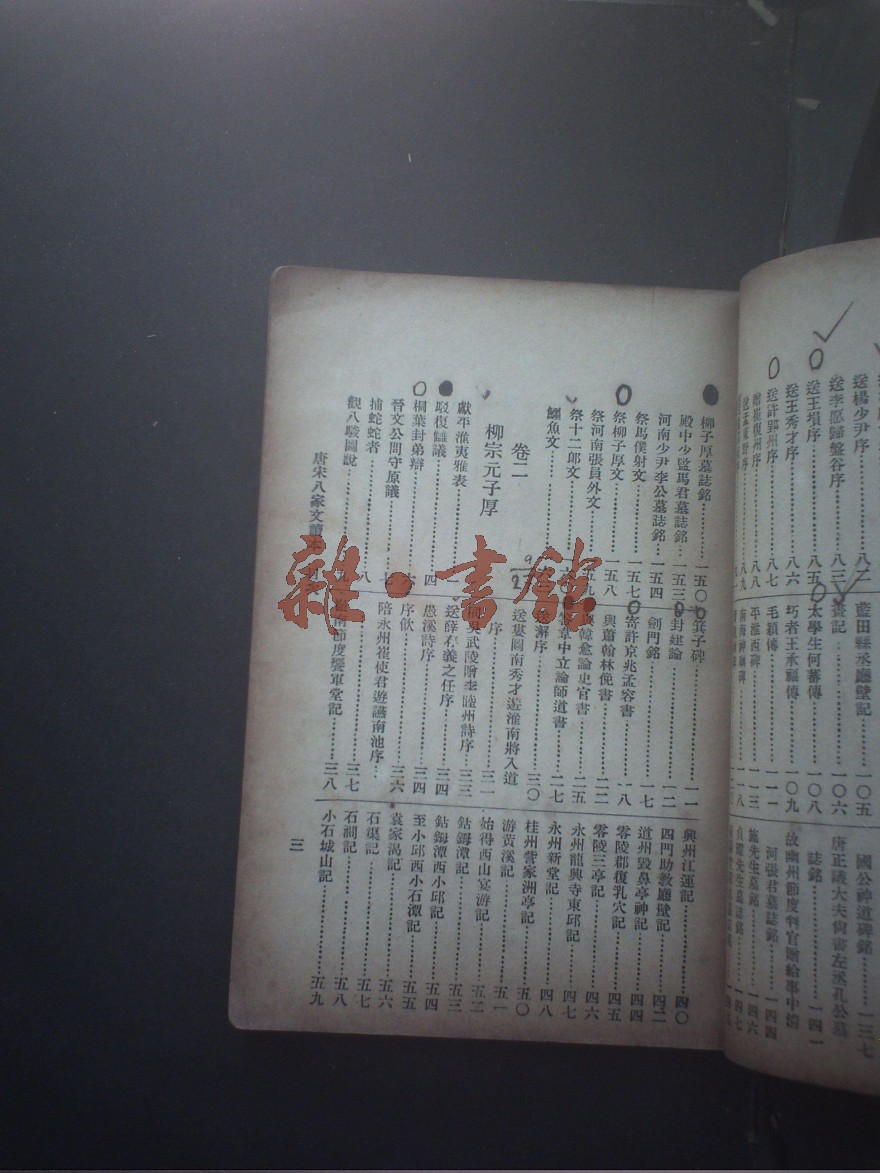 送楊少尹序……八二
送李愿歸盤谷序……八三
送王塤序……八五
送王秀才序……八六
送許郢州序……八七
贈崔復州序……八八
送孟東野序……八九
藍田縣丞廳壁記……一〇五
一〇六
太學生何蕃傳……一〇八
圬者王承福傳……一〇九
毛穎傳……一一一
平淮西碑……一一三
一一八
國公神道碑銘……一三七
唐正議大夫尚書左丞孔公墓
誌銘……一四一
故幽州節度判官贈給事中清
河張君墓誌銘……一四四
施先生墓銘……一四六
貞曜先生墓誌銘……一四七
柳子厚墓誌銘……一五〇
殿中少監馬君墓誌銘……一五三
河南少尹李公墓誌銘……一五四
祭馬僕射文……一五七
祭柳子厚文……一五八
祭河南張員外文……一五九
祭十二郎文
鱷魚文
卷二
柳宗元子厚
獻平淮夷雅表……一
駁復讎議……四
桐葉封弟辯……六
晉文公問守原議……七
捕蛇者……八
觀八駿圖說
箕子碑……一一
封建論……一二
劍門銘……一七
寄許京兆孟容書……一八
與蕭翰林俛書……二二
韓愈論史官書……二五
韋中立論師道書……二七
序……三〇
送婁圖南秀才遊淮南將入道
序……三一
吳武陵贈李睦州詩序……三三
送薛存義之任序……三四
愚溪詩序……三四
序飲……三六
陪永州崔使君遊讌南池序……三七
南節度饗軍堂記……三八
興州江運記……四〇
四門助教廳壁記……四二
道州毀鼻亭神記……四四
零陵郡復乳穴記……四五
零陵三亭記……四六
永州龍興寺東邱記……四七
永州新堂記……四八
桂州訾家洲亭記……五〇
游黃溪記……五一
始得西山宴游記……五二
鈷鉧潭記……五三
鈷鉧潭西小邱記……五四
至小邱西小石潭記……五五
袁家渴記……五六
石渠記……五七
石澗記……五八
小石城山記……五九
唐宋八家文讀本
三
雜·書館